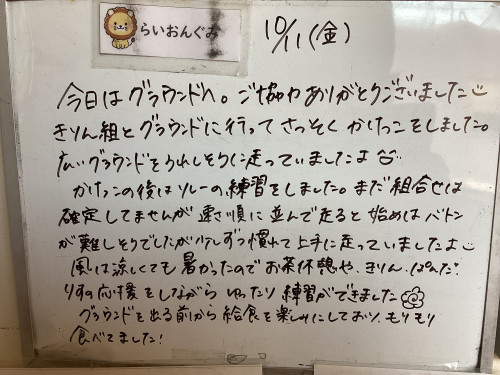 らいおんぐみ
10/11(金)
今日はグラウンドへ。ご協力ありがとうございました
きりん組とグラウンドに行って さっそく かけっこをしました。
広いグラウンドをうれしそうに走っていましたよ
かけっこの後はリレーの練習をしました。まだ組合せは
確定してませんが 速さ順に並んで走ると始めはバトン
が難しそうでしたが少しずつ慣れて上手に走っていましたよ
風は涼しくても暑かったのでお茶休憩や、きりん、ぱんだ、
りすの応援をしながら ゆったり練習ができました
グラウンドを出る前から給食を楽しみにしており、もりもり
食べてました!